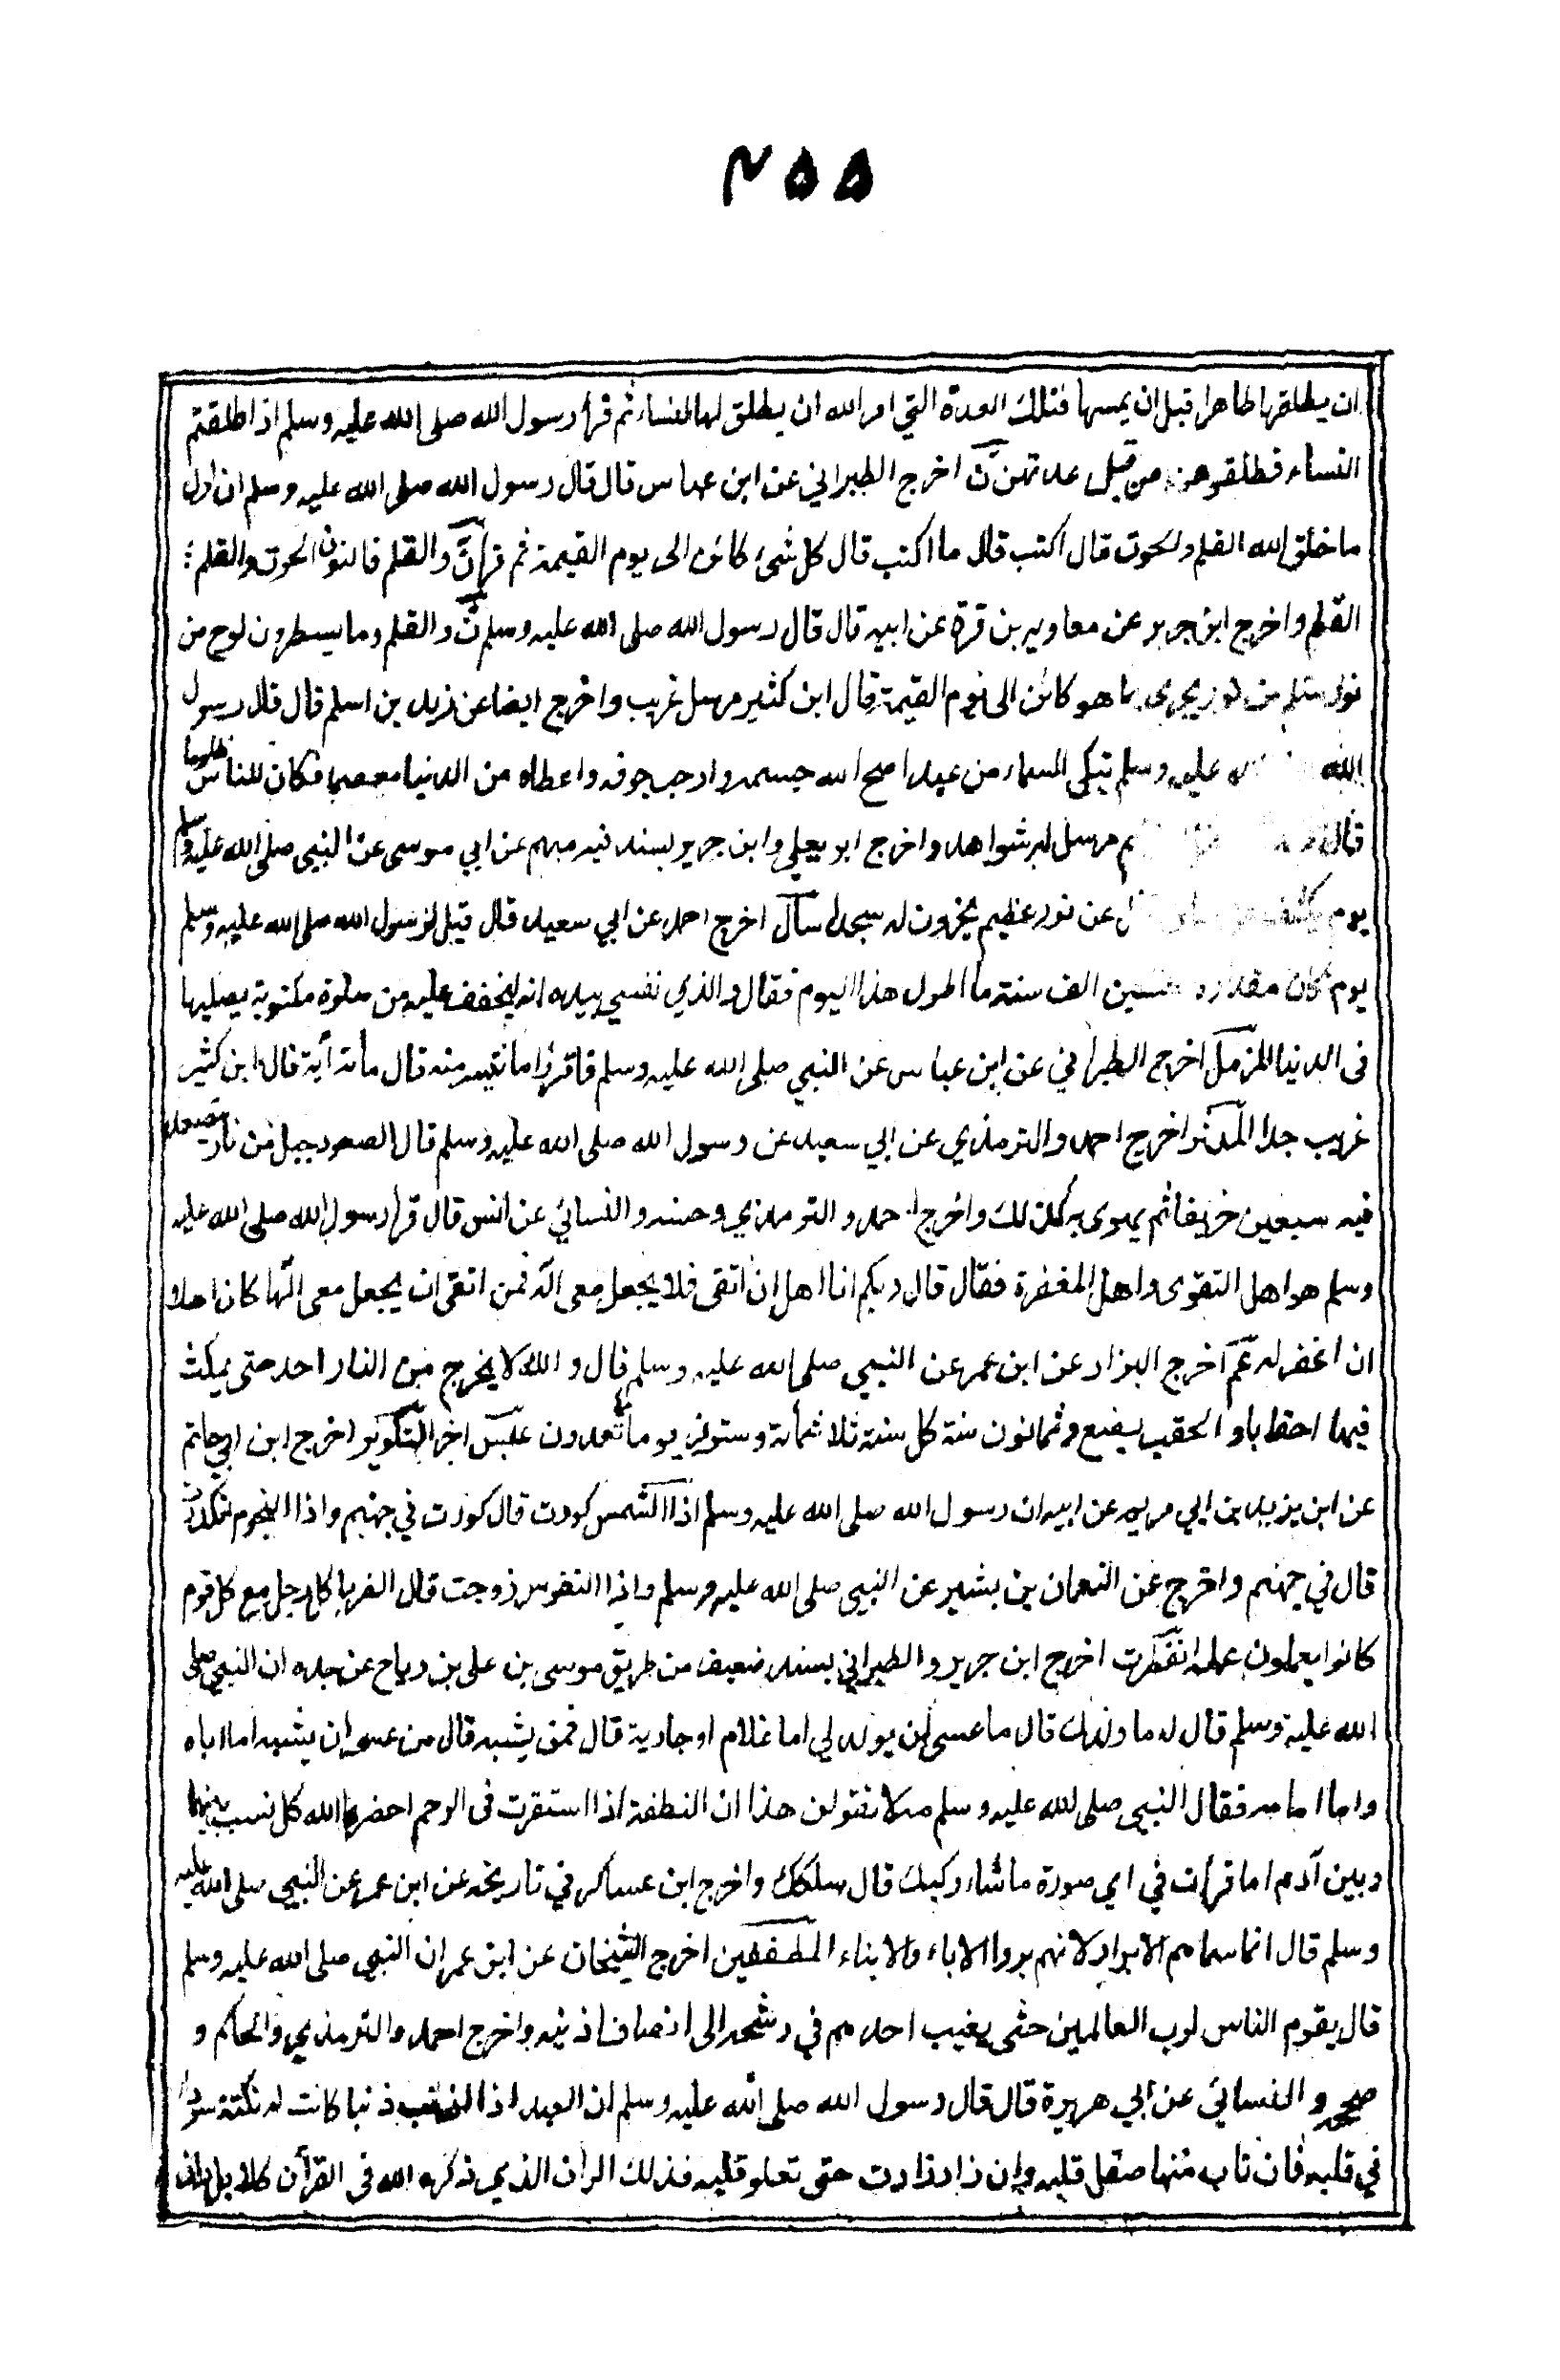 ٢٥٥
ان يطلقها طاهرا قبل ان يمسها فتلك العدة التي امر الله ان يطلق لها النساء ثم قرأ رسول الله صلى الله عليه وسلم اذا طلقتم
النساء فطلقوهن من قبل عدتهن نٓ اخرج الطبراني عن ابن عباس قال قال رسول الله صلى الله عليه وسلم ان اول
ما خلق الله القلم والحوت قال اكتب قال ما اكتب قال كل شئ كائن الى يوم القيمة ثم قرأ نٓ والقلم فالنون الحوت والقلم
القلم واخرج ابن جرير عن معاوية بن قرة عن ابيه قال قال رسول الله صلى الله عليه وسلم نٓ والقلم وما يسطرون لوح من
نور وقلم من نور يجري بما هو كائن الى يوم القيمة قال ابن كثير مرسل غريب واخرج ايضا عن زيد بن اسلم قال قال رسول
الله عليه وسلم تبكي السماء من عبد اصح الله جسمه وارحب جوفه واعطاه من الدنيا معضما فكان للناس ظلوما
قال مرسل له شواهد واخرج ابو يعلى وابن جرير بسند فيه مبهم عن ابي موسى عن النبي صلى الله عليه وسلم
يوم يكشف عن نور عظيم يخرون له سجدا سأل اخرج احمد عن ابي سعيد قال قيل لرسول الله صلى الله عليه وسلم
يوم كان مقداره خمسين الف سنة ما اطول هذا اليوم فقال والذي نفسي بيده انه ليخفف عليه من صلوة مكتوبة يصليها
فى الدنيا المزمل اخرج الطبراني عن ابن عباس عن النبي صلى الله عليه وسلم فاقرؤا ما تيسر منه قال مأنة أية قال ابن كثير
غريب جدا المدثر اخرج احمد والترمذي عن ابي سعيد عن رسول الله صلى الله عليه وسلم قال الصعود جبل من نار يتصعد
فيه سبعين خريفا ثم يهوى به كذلك واخرج احمد والترمذي وحسنه والنسائي عن انس قال قرأ رسول الله صلى الله عليه
وسلم هو اهل التقوى واهل المغفرة فقال قال ربكم انا اهل ان اتقى فلا يجعل معى اله فمن اتقى ان يجعل معى الها كان اهلا
ان اغفر له عم اخرج البزار عن ابن عمر عن النبي صلى الله عليه وسلم قال والله لا يخرج من النار احد حتى يمكث
فيها احقابا والحقب بضع وثمانون سنة كل سنة ثلاثمأنة وستون يوما مما تعدون عبس اخر التكوير اخرج ابن ابي حاتم
عن ابن يزيد بن ابي مريم عن ابيه ان رسول الله صلى الله عليه وسلم اذا الشمس كورت قال كورت في جهنم واذا النجوم انكدرت
قال في جهنم واخرج عن النعمان بن بشير عن النبي صلى الله عليه وسلم واذا النفوس زوجت قال القرناء كل رجل مع كل قوم
كانوا يعملون عمله انفطرت اخرج ابن جرير والطبراني بسند ضعيف من طريق موسى بن على بن رباح عن جده ان النبي صلى
الله عليه وسلم قال له ما ولدك قال ما عسى ان يولد لي اما غلام او جارية قال فمن يشبه قال من عسى ان يشبه اما اباه
واما امه فقال النبي صلى الله عليه وسلم مه لا تقولن هذا ان النطفة اذا استقرت فى الرحم احضرها الله كل نسب بينها
وبين آدم اما قرأت في اي صورة ما شاء ركبك قال سلكك واخرج ابن عساكر في تاريخه عن ابن عمر عن النبي صلى الله عليه
وسلم قال انما سماهم الابرار لانهم بروا الاباء والابناء المطففين اخرج الشيخان عن ابن عمر ان النبي صلى الله عليه وسلم
قال يقوم الناس لرب العالمين حتى يغيب احدهم في رشحه الى انصاف اذنيه واخرج احمد والترمذي والحاكم و
صححه والنسائي عن ابي هريرة قال قال رسول الله صلى الله عليه وسلم ان العبد اذا اذنب ذنبا كانت له نكتة سوداء
في قلبه فان تاب منها صقل قلبه وان زاد زادت حتى تعلو قلبه فذلك الران الذي ذكره الله فى القرأن كلا بل ران